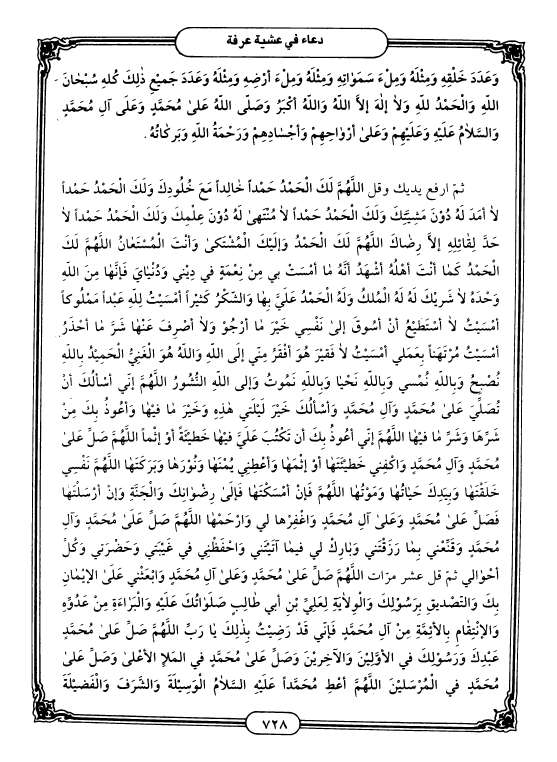 دعاء في عشية عرفة
وَعَدَدَ خَلْقِهِ وَمِثْلَهُ وَمِلْءَ سَمَوَاتِهِ وَمِثْلَهُ وَمِلْءَ أَرْضِهِ وَمِثْلَهُ وَعَدَدَ جَمِيْعِ ذٰلِكَ كُلِهِ سُبْحٰانَ
اللهِ وَالْحَمْدُ للهِ وَلاٰ إِلٰهَ إِلاَّ اللهُ وَاللهُ أَكْبَرُ وَصَلَّى اللهُ عَلىٰ مُحَمَّدٍ وَعَلَى آلِ مُحَمَّدٍ
وَالسَّلاٰمُ عَلَيْهِ وَعَلَيْهِمْ وَعَلىٰ أَرْوٰاحِهِمْ وَأَجْسٰادِهِمْ وَرَحْمَةُ اللهِ وَبَرَكٰاتُهُ .
ثمّ ارفع يديك وقل اللَّهُمَّ لَكَ الْحَمْدُ حَمْداً خٰالِداً مَعَ خُلُودِكَ وَلَكَ الْحَمْدُ حَمْداً
لاٰ أَمَدَ لَهُ دُوْنَ مَشِيَّتِكَ وَلَكَ الْحَمْدُ حَمْداً لاٰ مُنْتَهىٰ لَهُ دُوْنَ عِلْمِكَ وَلَكَ الْحَمْدُ حَمْداً لاٰ
حَدَّ لِقٰائِلِهِ إِلاَّ رِضٰاكَ اللَّهُمَّ لَكَ الْحَمْدُ وَإِلَيْكَ الْمُشْتَكىٰ وَأَنْتَ الْمُسْتَعٰانُ اللَّهُمَّ لَكَ
الْحَمْدُ كَمٰا أَنْتَ أَهْلُهُ أَشْهَدُ أَنَّهُ مٰا أَمْسَتْ بي مِنْ نِعْمَةٍ في دِيْني وَدُنْيٰايَ فَإِنَّهٰا مِنَ اللهِ
وَحْدَهُ لاٰ شَرِيْكَ لَهُ لَهُ الْمُلكُ وَلَهُ الْحَمْدُ عَلَيَّ بِهٰا وَالشُّكْرُ كَثِيْراً أَمْسَيْتُ للهِ عَبْداً مَمْلُوكاً
أَمْسَيْتُ لاٰ أَسْتَطِيْعُ أَنْ أَسُوقَ إِلىٰ نَفْسي خَيْرَ مٰا أَرْجُوْ وَلاٰ أَصْرِفَ عَنْهٰا شَرَّ مٰا أَحْذَرُ
أَمْسَيْتُ مُرْتَهَناً بِعَمَلي أَمْسَيْتُ لاٰ فَقيْرَ هُوَ أَفْقَرُ مِنّي إِلَى اللهِ وَاللهُ هُوَ الْغَنِيُّ الْحَمِيْدُ بِاللهِ
نُصْبِحُ وَبِاللهِ نُمْسي وَبِاللهِ نَحْيٰا وَبِاللهِ نَمُوتُ وَإِلى اللهِ النُّشُورُ اللَّهُمَّ إِنّي أَسأَلُكَ أَنْ
تُصَلِّيَ عَلىٰ مُحَمَّدٍ وَآلِ مُحَمَّدٍ وَأَسْأَلُكَ خَيْرَ لَيْلَتي هٰذِهِ وَخَيْرَ مٰا فيْهٰا وَأَعُوذُ بِكَ مِنْ
شَرِّهٰا وَشَرِّ مٰا فيْهٰا اللَّهُمَّ إِنّي أَعُوذُ بِكَ أَن تَكْتُبَ عَلَيَّ فيْهٰا خَطيْئَةً أوْ إِثْماً اللَّهُمَّ صَلِّ عَلىٰ
مُحَمَّدٍ وَآلِ مُحَمَّدٍ وَاكْفِني خَطيْئَتَهٰا أوْ إِثْمَهٰا وَأَعْطِني يُمْنَهٰا وَنُوْرَهٰا وَبَرَكَتَهٰا اللَّهُمَّ نَفْسي
خَلَقْتَهٰا وَبِيَدِكَ حَيٰاتُهٰا وَمَوْتُهٰا اللَّهُمَّ فَإِنْ أَمْسَكْتَهٰا فَإِلَى رِضْوٰانِكَ وَالْجَنَّةِ وَإِنْ أَرْسَلْتَهٰا
فَصَلِّ عَلىٰ مُحَمَّدٍ وَعَلىٰ آلِ مُحَمَّدٍ وَاغْفِرْهٰا لي وَارْحَمْهٰا اللَّهُمَّ صَلِّ عَلَىٰ مُحَمَّدٍ وَآلِ
مُحَمَّدٍ وَقَنِّعْني بِمٰا رَزَقْتَني وَبٰارِكْ لي فيمٰا آتَيْتَني وَاحْفَظْنِي في غَيْبَتي وَحَضْرَتي وَكُلِّ
أَحْوٰالي ثمّ قل عشر مرّات اللَّهُمَّ صَلِّ عَلىٰ مُحَمَّدٍ وَعَلىٰ آلِ مُحَمَّدٍ وَابْعَثْني عَلَىٰ الإِيْمٰانِ
بِكَ وَالتَّصْدِيقِ بِرَسُوْلِكَ وَالْوِلاٰيَةِ لِعَلِيِّ بْنِ أَبي طٰالِبٍ صَلَوٰاتُكَ عَلَيْهِ وَالْبَرٰاءَةِ مِنْ عَدُوِّهِ
وَالإِئْتِمٰامِ بِالأَئِمَّةِ مِنْ آلِ مُحَمَّدٍ فَإِنّي قَدْ رَضِيْتُ بِذٰلِكَ يٰا رَبِّ اللَّهُمَّ صَلِّ عَلىٰ مُحَمَّدٍ
عَبْدِكَ وَرَسُوْلِكَ في الأَوَّلِيْنَ وَالآخِرِيْنَ وَصَلِّ عَلىٰ مُحَمَّدٍ في المَلإِ الأَعْلىٰ وَصَلِّ عَلىٰ
مُحَمَّدٍ في الْمُرْسَليْنَ اللَّهُمَّ أَعْطِ مُحَمَّداً عَلَيْهِ السَّلاٰمُ الْوَسِيْلَةَ وَالشَّرَفَ وَالْفَضِيْلَةَ
٧٢٨